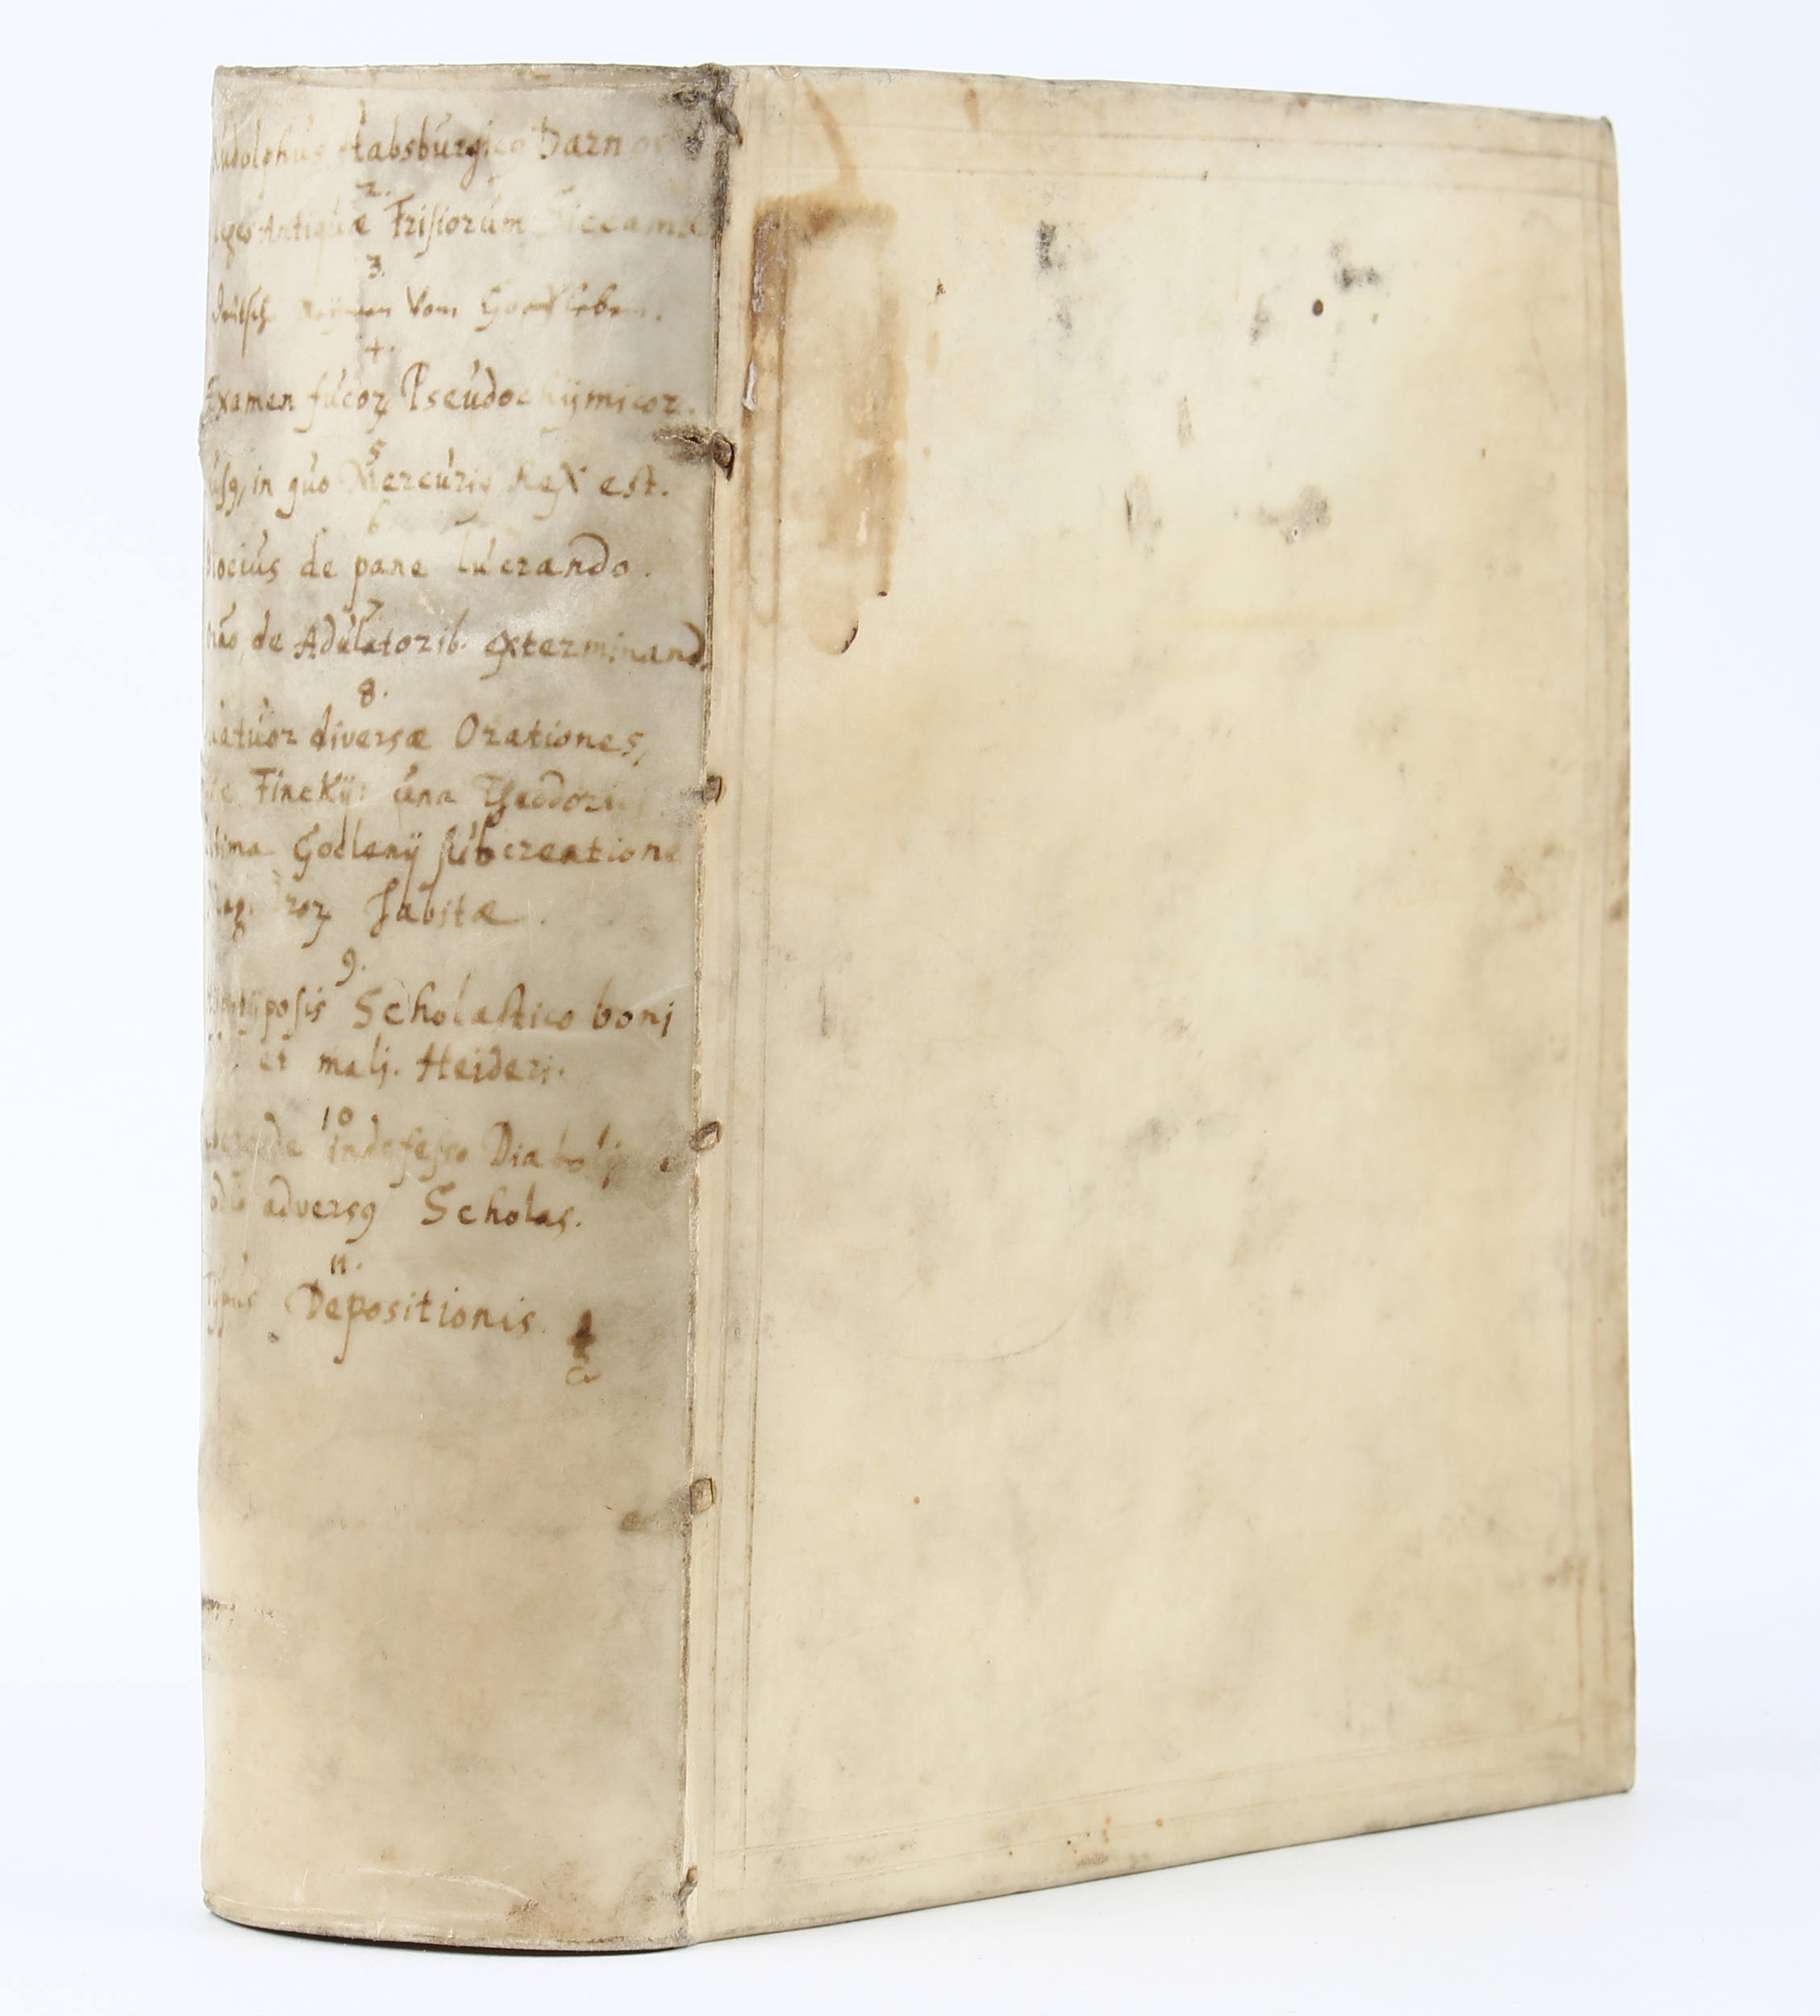 Rudolphus Habsburgico
2.
Leges Antiquæ Frisiorum Siccamæ
3.
deütsch vom
4.
Examen fucoꝝ Pseudochÿmicor.
5
in quo Mercuriꝯ Rex est.
6
de pane lucrando.
7
de Adulatorib. exterminand.
8.
quatuor diversæ Orationes,
Finckij: una Theodori
ultima Goclenij sub creatione
habitæ.
9.
Scholastico bonj
et malj. Heiderj.
10
de indefesso Diabolj
odio adversꝯ Scholas.
11.
Typus Depositionis.